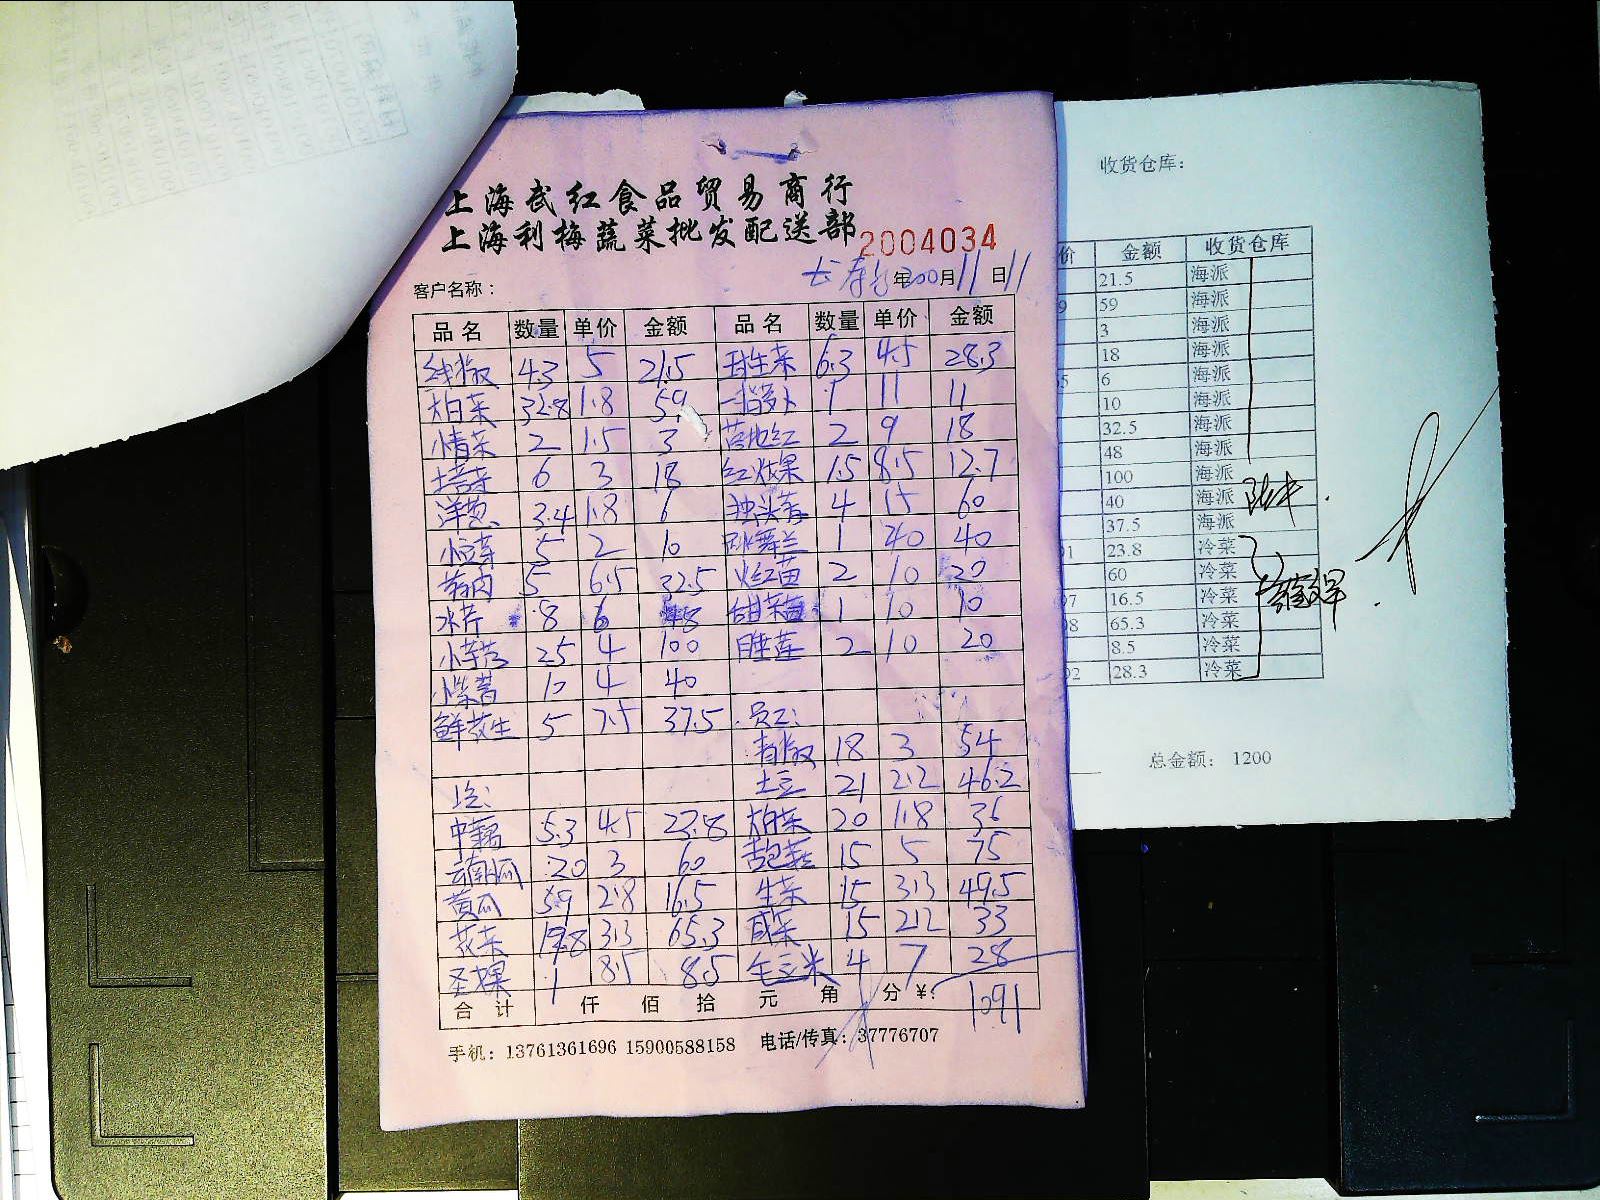 上海武红食品贸易商行
上海利梅蔬菜批发配送部
2004034
客户名称： 年 月11日11
品名 数量 单价 金额 品名 数量 单价 金额
4.3 5 21.5 球生菜 6.3 4.5 28.3
大白菜 32.8 1.8 59 1 11 11
小青菜 2 1.5 3 苋地红 2 9 18
塔菜 6 3 18 8.5 12.7
洋葱 3.4 1.8 6 独头蒜 4 15 60
小豆芽 5 2 10 跳舞兰 1 40 40
5 6.5 32.5 火红苗 2 10 20
水芹 8 6 48 甜菜苗 1 10 10
小芋艿 25 4 100 睡莲 2 10 20
小紫薯 10 4 40
鲜花生 5 7.5 37.5 员工：
青椒 18 3 54
土豆 21 2.2 46.2
中藕 5.3 4.5 23.8 大白菜 20 1.8 36
云南瓜 20 3 60 15 5 75
黄瓜 5.9 2.8 16.5 生菜 15 3.3 49.5
花菜 19.8 3.3 65.3 咸菜 15 2.2 33
圣果 1 8.5 8.5 毛豆米 4 7 28
合计 仟 佰 拾 元 角 分 ¥: 1091
手机：13761361696 15900588158 电话/传真：37776707
收货仓库：
价 金额 收货仓库
21.5 海派
9 59 海派
3 海派
18 海派
5 6 海派
10 海派
32.5 海派
48 海派
100 海派
40 海派
37.5 海派
1 23.8 冷菜
60 冷菜
97 16.5 冷菜
98 65.3 冷菜
8.5 冷菜
02 28.3 冷菜
总金额： 1200